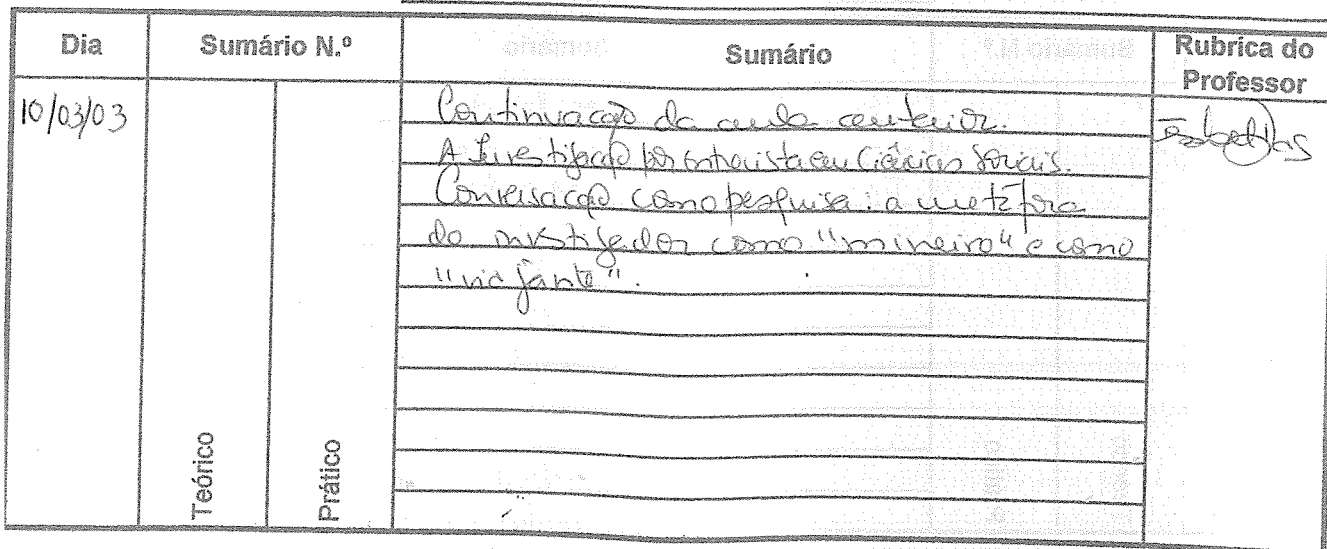 Dia Sumário N.º Sumário Rubrica do Professor
Teórico Prático
10/03/03
Continuação da aula anterior.
A Investigação por entrevista em Ciências Sociais.
Conversação como pesquisa: a metáfora
do investigador como "mineiro" e como
"viajante".